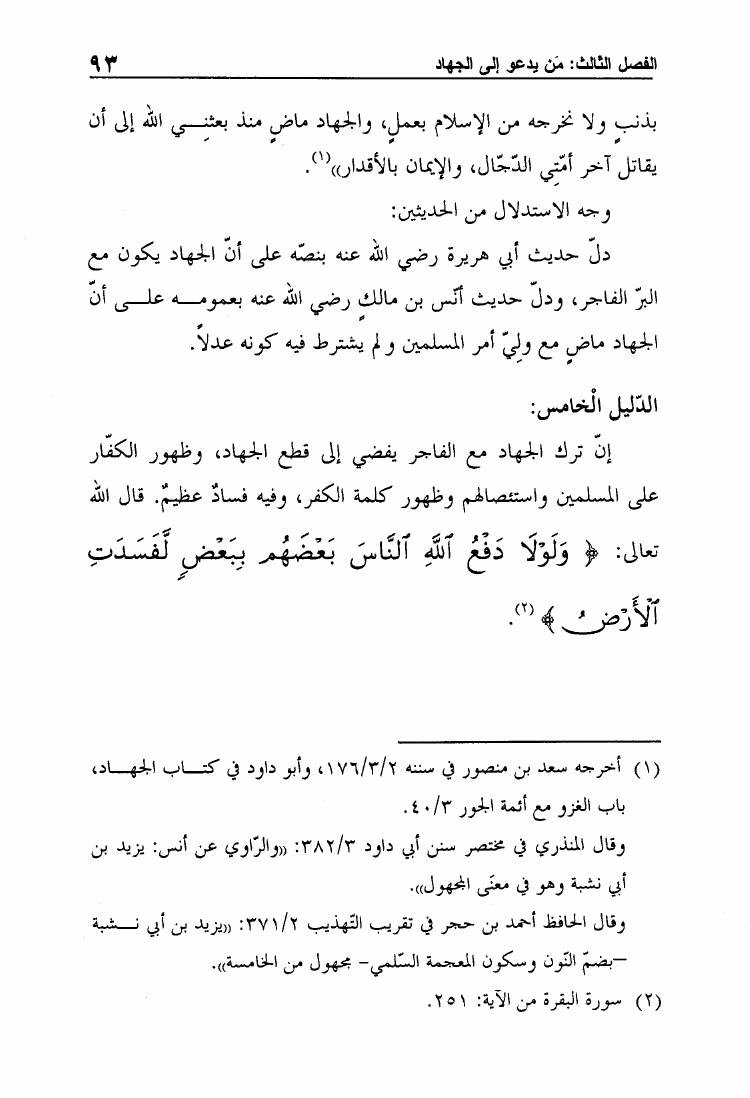 الفصل الثّالث: مَن يدعو إلى الجهاد ٩٣
بذنبٍ ولا نخرجه من الإسلام بعملٍ، والجهاد ماضٍ منذ بعثنِـي الله إلى أن
يقاتل آخر أمّتِي الدّجّال، والإيمان بالأقدار))(١).
وجه الاستدلال من الحديثين:
دلّ حديث أبي هريرة رضي الله عنه بنصّه على أنّ الجهاد يكون مع
البرّ الفاجر، ودلّ حديث أنّس بن مالكٍ رضي الله عنه بعمومـه علـى أنّ
الجهاد ماضٍ مع ولِيّ أمر المسلمين ولم يشترط فيه كونه عدلاً.
الدّليل الْخامس:
إنّ ترك الجهاد مع الفاجر يفضي إلى قطع الجهاد، وظهور الكفّار
على المسلمين واستئصالهم وظهور كلمة الكفر، وفيه فسادٌ عظيمٌ. قال الله
تعالى: ﴿ وَلَوْلَا دَفْعُ ٱللَّهِ ٱلنَّاسَ بَعْضَهُم بِبَعْضٍ لَّفَسَدَتِ
ٱلْأَرْضُ ﴾(٢).
(١) أخرجه سعد بن منصور في سننه ١٧٦/٣/٢، وأبو داود في كتـاب الجهـاد،
باب الغزو مع أئمة الجور ٤٠/٣.
وقال المنذري في مختصر سنن أبي داود ٣٨٢/٣: ((والرّاوي عن أنس: يزيد بن
أبي نشبة وهو في معنَى المجهول)).
وقال الحافظ أحمد بن حجر في تقريب التّهذيب ٣٧١/٢: ((يزيد بن أبي نـشبة
–بضمّ النّون وسكون المعجمة السّلمي– مجهول من الخامسة)).
(٢) سورة البقرة من الآية: ٢٥١.